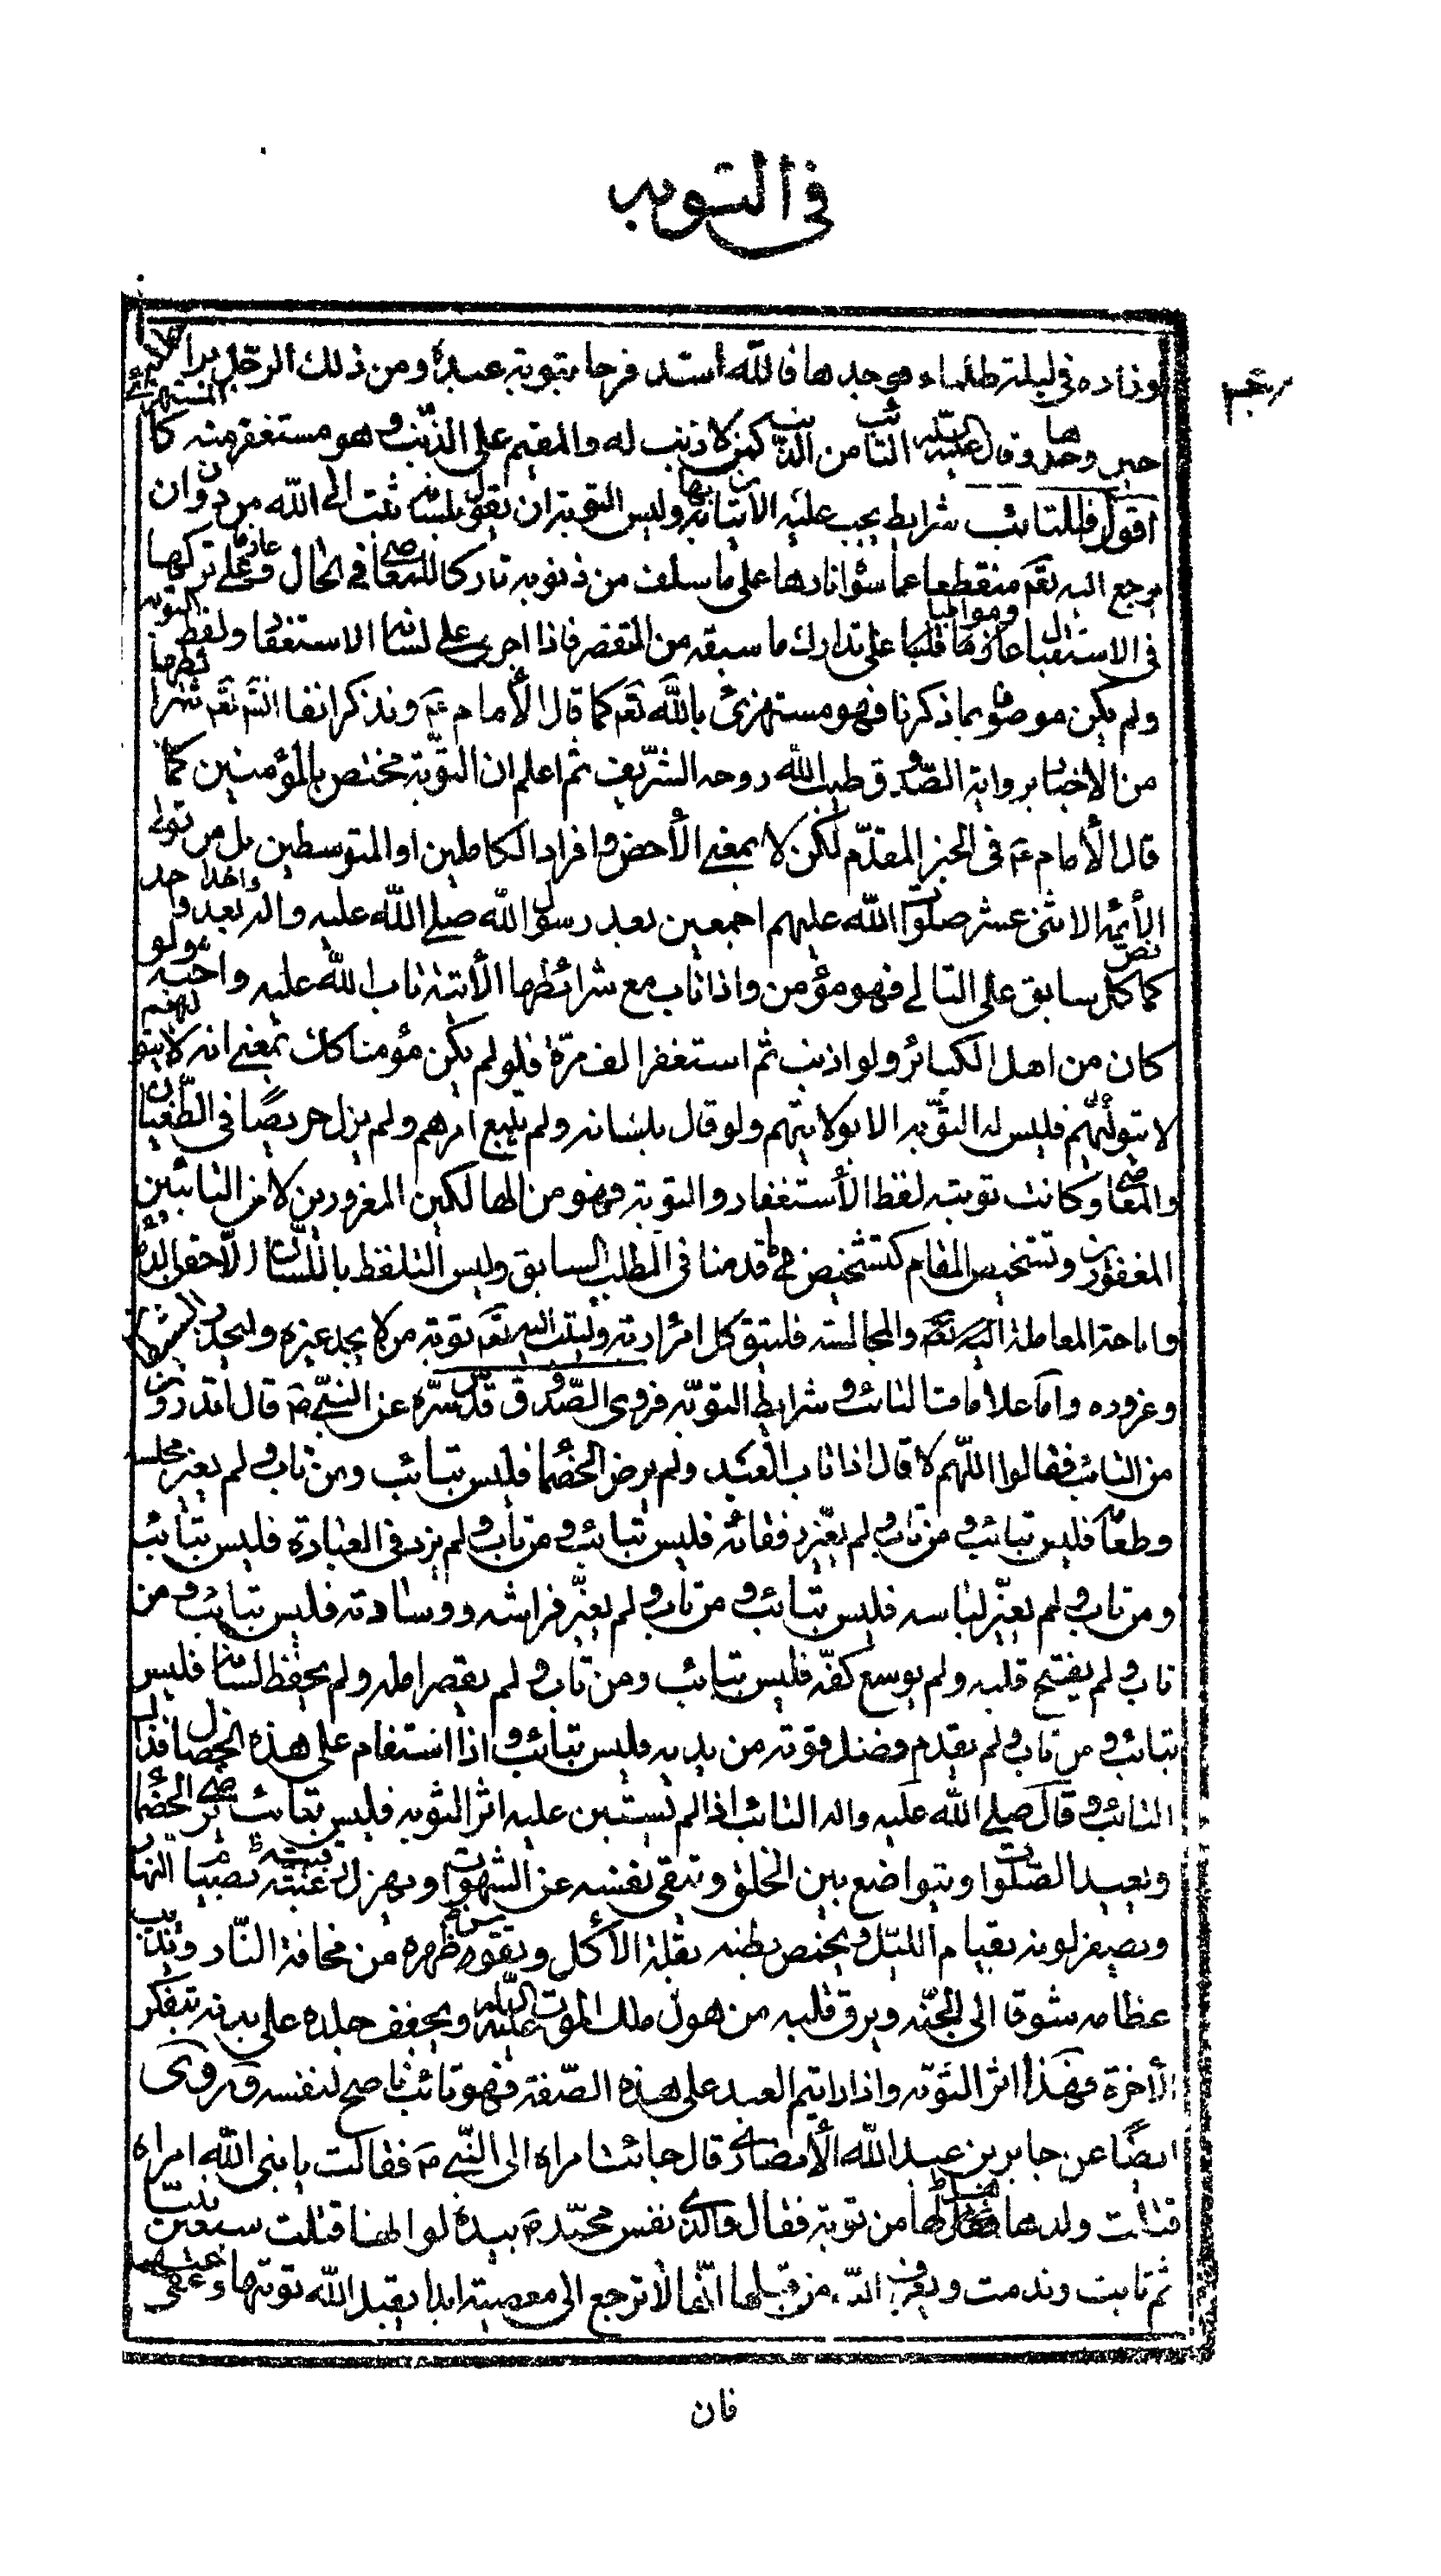 في التوبة
وزاده في ليلة ظلماء فوجدها فالله اشد فرحا بتوبة عبده ومن ذلك الرجل براحلته
حين وجدها وقال عليه السلم التائب من الذنب كمن لا ذنب له والمقيم على الذنب وهو مستغفر منه كالمستهزئ
اقول فللتائب شرايط يجب عليه الاتيان بها وليس التوبة ان يقول بلسانه تبت الى الله من دون ان
يرجع اليه تعم منقطعا عما سواه نادما على ما سلف من ذنوبه تاركا للمعاصي في الحال وعازما على تركها
في الاستقبال عازما قلبا ومواظبا على تدارك ما سبقه من التقصير فاذا اجرى على لسانه الاستغفار ولفظ التوبة
ولم يكن موصوفا بما ذكرنا فهو مستهزئ بالله تعم كما قال الأمام ع ونذكر انفا انشم تعم شطرا
من الاخبار برواية الصدوق طيب الله روحه الشريف ثم اعلم ان التوبة مختص بالمؤمنين كما
قال الأمام ع في الخبر المقدم لكن لا بمعنى الأخص وافراد الكاملين او المتوسطين بل من تولى
الأئمة الاثنى عشر صلوات الله عليهم اجمعين بعد رسول الله صلى الله عليه واله بعد واحدا واحد
كما نص كل سابق على التالي فهو مؤمن واذا تاب مع شرائطها الأتية تاب الله عليه واحبه ولو
كان من اهل الكبائر ولو اذنب ثم استغفر الف مرة فلو لم يكن مؤمنا كك بمعنى انه
لا يتوليهم فليس له التوبة الا بولايتهم ولو قال بلسانه ولم يتبع امرهم ولم يزل حريصا في الطغيان
والمعاصي وكانت توبته لفظ الأستغفار والتوبة فهو من الهالكين المغرورين لا من التائبين
المغفورين وتشخيص المقام كتشخيص ما قدمنا في المطلب السابق وليس التلفظ باللسان
واباحة المعاملة اليه تعم والمجالسة فليتق كل امرء ربه وليتب اليه تعم توبة من لا يجد غيره وليحذر الشيطان
وغروره واما علامات التائب وشرايط التوبة فروى الصدوق قدس سره عن النبي ص قال اتدرون
من التائب فقالوا اللهم لا قال اذا تاب العبد ولم يرض الخصماء فليس بتائب ومن تاب ولم يغير مجلسه
وطعامه فليس بتائب ومن تاب ولم يغير رفقائه فليس بتائب ومن تاب ولم يزد في العبادة فليس بتائب
ومن تاب ولم يغير لباسه فليس بتائب ومن تاب ولم يغير فراشه ووسادته فليس بتائب ومن
تاب ولم يفتح قلبه ولم يوسع كفه فليس بتائب ومن تاب ولم يقصر امله ولم يحفظ لسانه فليس
بتائب ومن تاب ولم يقدم فضل قوته من يديه فليس بتائب واذا استقام على هذه الخصال فذاك
التائب وقال صلى الله عليه واله التائب اذا لم تستبن عليه اثر التوبة فليس بتائب يرضي الخصماء
ويعيد الصلوات ويتواضع بين الخلق ويتقى نفسه عن الشهوات ويهزل رقبته بصيام النهار
ويصفر لونه بقيام الليل ويخمص بطنه بقلة الأكل ويقوس ظهره من مخافة النار ويذيب
عظامه شوقا الى الجنة ويرق قلبه من هول ملك الموت عليه السلام ويجفف جلده على بدنه بتفكر
الأخرة فهذا اثر التوبة واذا رايتم العبد على هذه الصفة فهو تائب ناصح لنفسه وروى
ايضا عن جابر بن عبد الله الأنصاري قال جائت امراه الى النبي ص فقالت يا نبي الله امراه
قتلت ولدها هل لها من توبة فقال والذي نفس محمد ص بيده لو انها قتلت سبعين نبيا
ثم تابت وندمت ويعرف الله من قبلها انها لا ترجع الى معصية ابدا يقبل الله توبتها وعفى عنها
فان